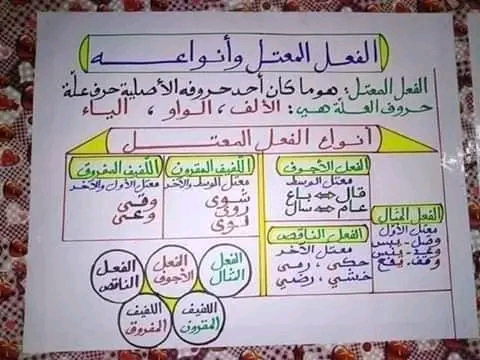 الفعل المعتل وأنواعه
الفعل المعتل: هو ما كان أحد حروفه الأصلية حرف علّة
حروف العلّة هي: الألف ، الواو ، الياء
أنواع الفعل المعتل
الفعل المثال
معتل الأول
وصل - يبس
وعد - يئس
وقف - يفع
الفعل الأجوف
معتل الوسط
قال ⇔ باع
عام ⇔ سال
الفعل الناقص
معتل الآخر
حكى ، رمى
خشي ، رضي
اللفيف المقرون
معتل الوسط والآخر
شوى
روى
لوى
اللفيف المفروق
معتل الأول والآخر
وقى
وعى
الفعل المثال
الفعل الأجوف
الفعل الناقص
اللفيف المقرون
اللفيف المفروق